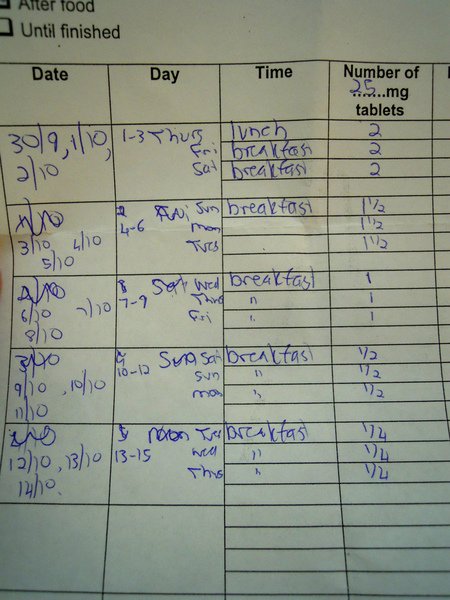 After food
Until finished
Date Day Time Number of
25 mg
tablets
30/9, 1/10, 1-3 Thurs lunch 2
Fri breakfast 2
2/10 Sat breakfast 2
Sun breakfast 1 1/2
3/10 4/10 4-6 mon 1 1/2
5/10 Tues 1 1/2
Sat Wed breakfast 1
6/10 7/10 7-9 Thurs " 1
8/10 Fri " 1
Sun Sat breakfast 1/2
9/10, 10/10 10-12 Sun " 1/2
11/10 mon " 1/2
mon Tues breakfast 1/4
12/10, 13/10 13-15 Wed " 1/4
14/10. Thurs " 1/4